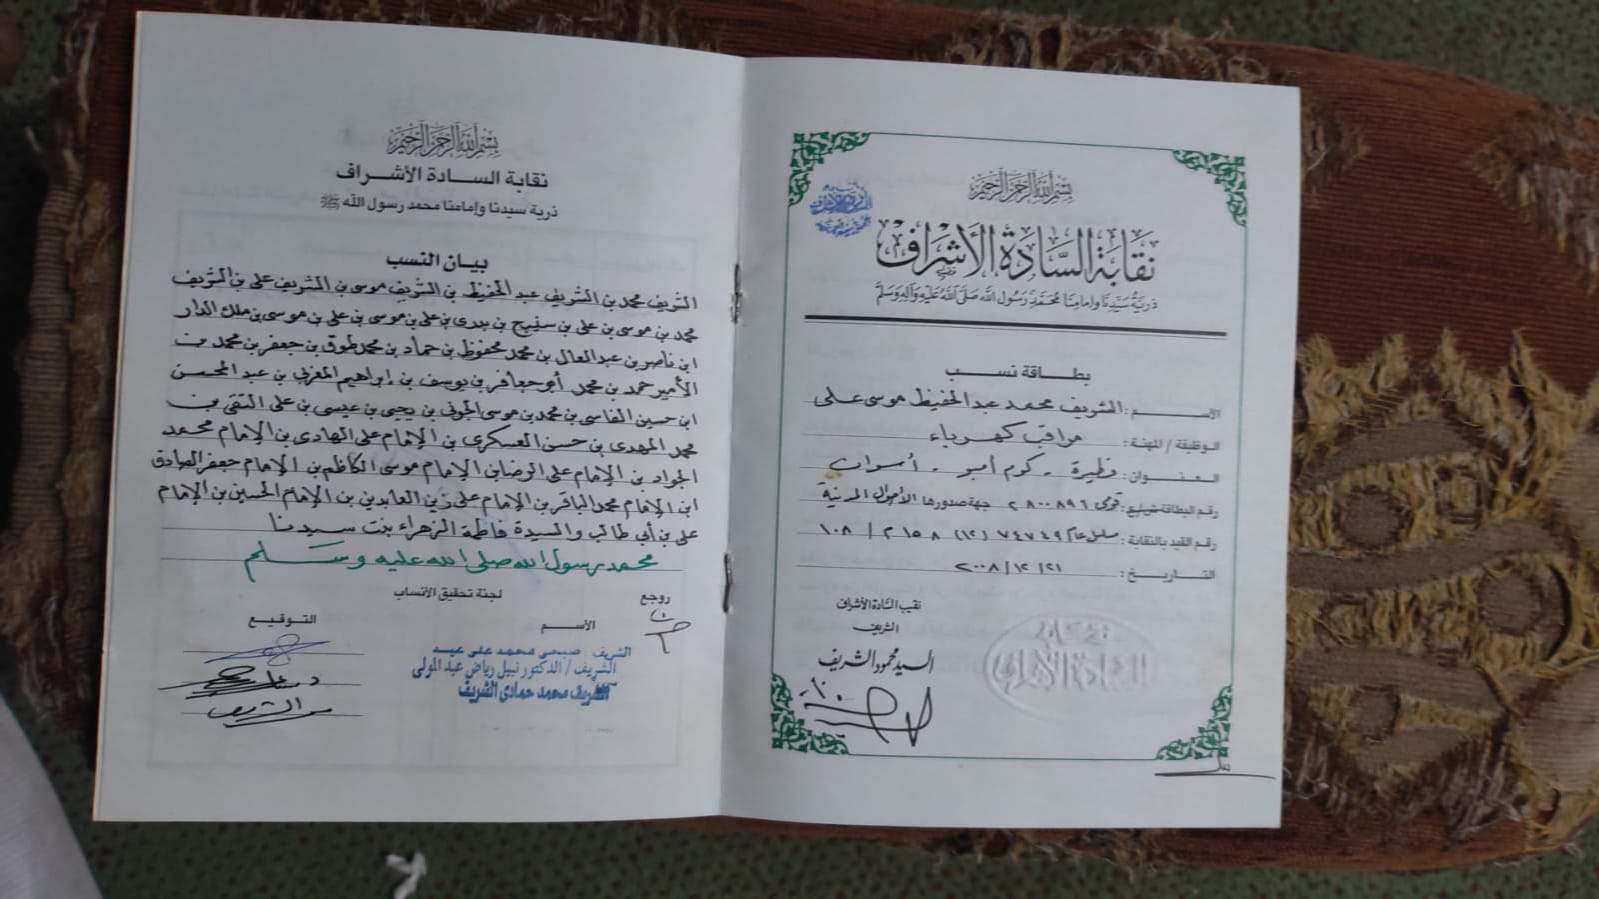 بسم الله الرحمن الرحيم
نقابة السادة الأشراف
ذرية سيدنا وإمامنا محمد رسول الله صلى الله عليه وآله وسلم
بطاقة نسب
الاسم : الشريف محمد عبد الحفيظ موسى على
الوظيفة / المهنة : مراقب كهرباء
العنوان : فطيرة - كوم أمبو - أسوان
رقم البطاقة : قومى ٢٨٠٠٨٩٦ جهة صدورها الأحوال المدنية
رقم القيد بالنقابة : مسلسل عام ٧٤٧٤٩ (١٢) ٢١٥٨ / ١٠٨
التاريخ : ٢١ / ١٢ / ٢٠٠٨
نقيب السادة الأشراف
الشريف
السيد محمود الشريف
نقابة
السادة الأشراف
بسم الله الرحمن الرحيم
نقابة الســادة الأشـراف
ذرية سيدنا وإمامنا محمد رسول الله ﷺ
بيان النسب
الشريف محمد بن الشريف عبد الحفيظ بن الشريف موسى بن الشريف على بن الشريف
محمد بن موسى بن على بن سفيح بن بدرى بن على بن موسى بن على بن موسى بن ملك الدار
ابن ناصر بن عبد العال بن محمد محفوظ بن حماد بن محمد طوق بن جعفر بن محمد بن
الأمير حمد بن محمد أبو جعافر بن يوسف بن إبراهيم المغربي بن عبد المحسن
ابن حسين الفاسى بن محمد بن موسى الجونى بن يحيى بن عيسى بن على التقى بن
محمد المهدى بن حسن العسكرى بن الإمام على الهادى بن الإمام محمد
الجواد بن الإمام على الرضا بن الإمام موسى الكاظم بن الإمام جعفر الصادق
ابن الإمام محمد الباقر بن الإمام على زين العابدين بن الإمام الحسين بن الإمام
على بن أبي طالب والسيدة فاطمة الزهراء بنت سيدنا
محمد رسول الله صلى الله عليه وسلم
روجع
لجنة تحقيق الأنساب
الأسـم
التوقيـع
الشريف . صبحى محمد على عيد
الشريف / الدكتور نبيل رياض عبد المولى
الشريف محمد حمادى الشريف